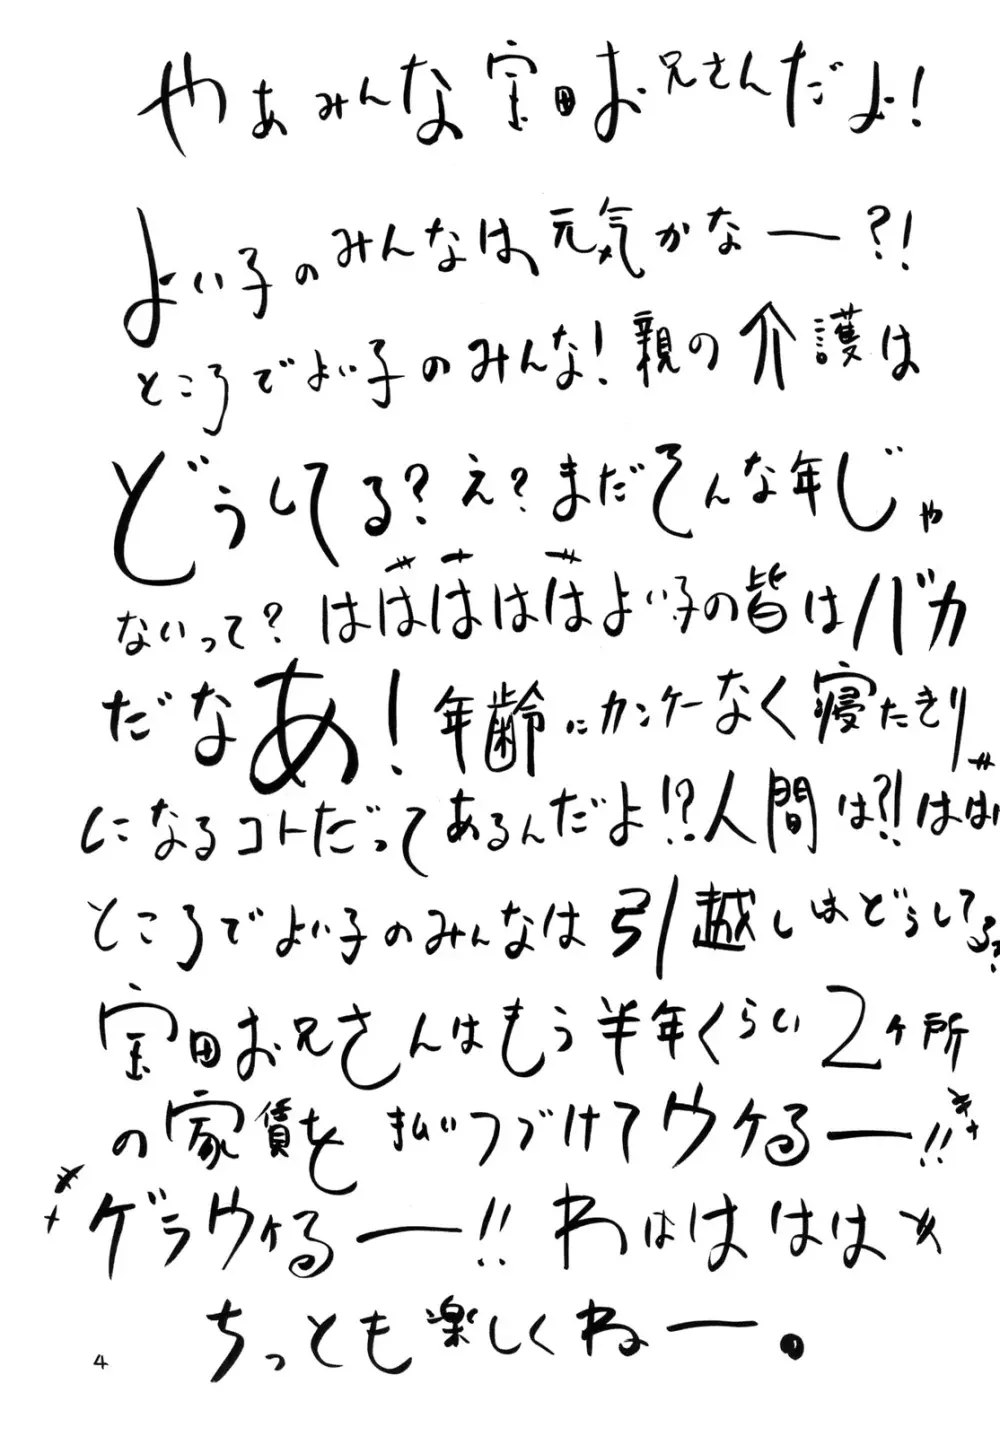 やぁみんな宝田お兄さんだよ！
よい子のみんなは元気かなー？！
ところでよい子のみんな！親の介護は
どうしてる？え？まだそんな年じゃ
ないって？はははははよい子の皆はバカ
だなあ！年齢にカンケーなく寝たきり
になるコトだってあるんだよ！？人間は？！ははは
ところでよい子のみんなは引越しはどうしてる？
宝田お兄さんはもう半年くらい2ヶ所
の家賃を払いつづけてウケるー！！
ゲラウケるー！！わはははは
ちっとも楽しくねー。
4